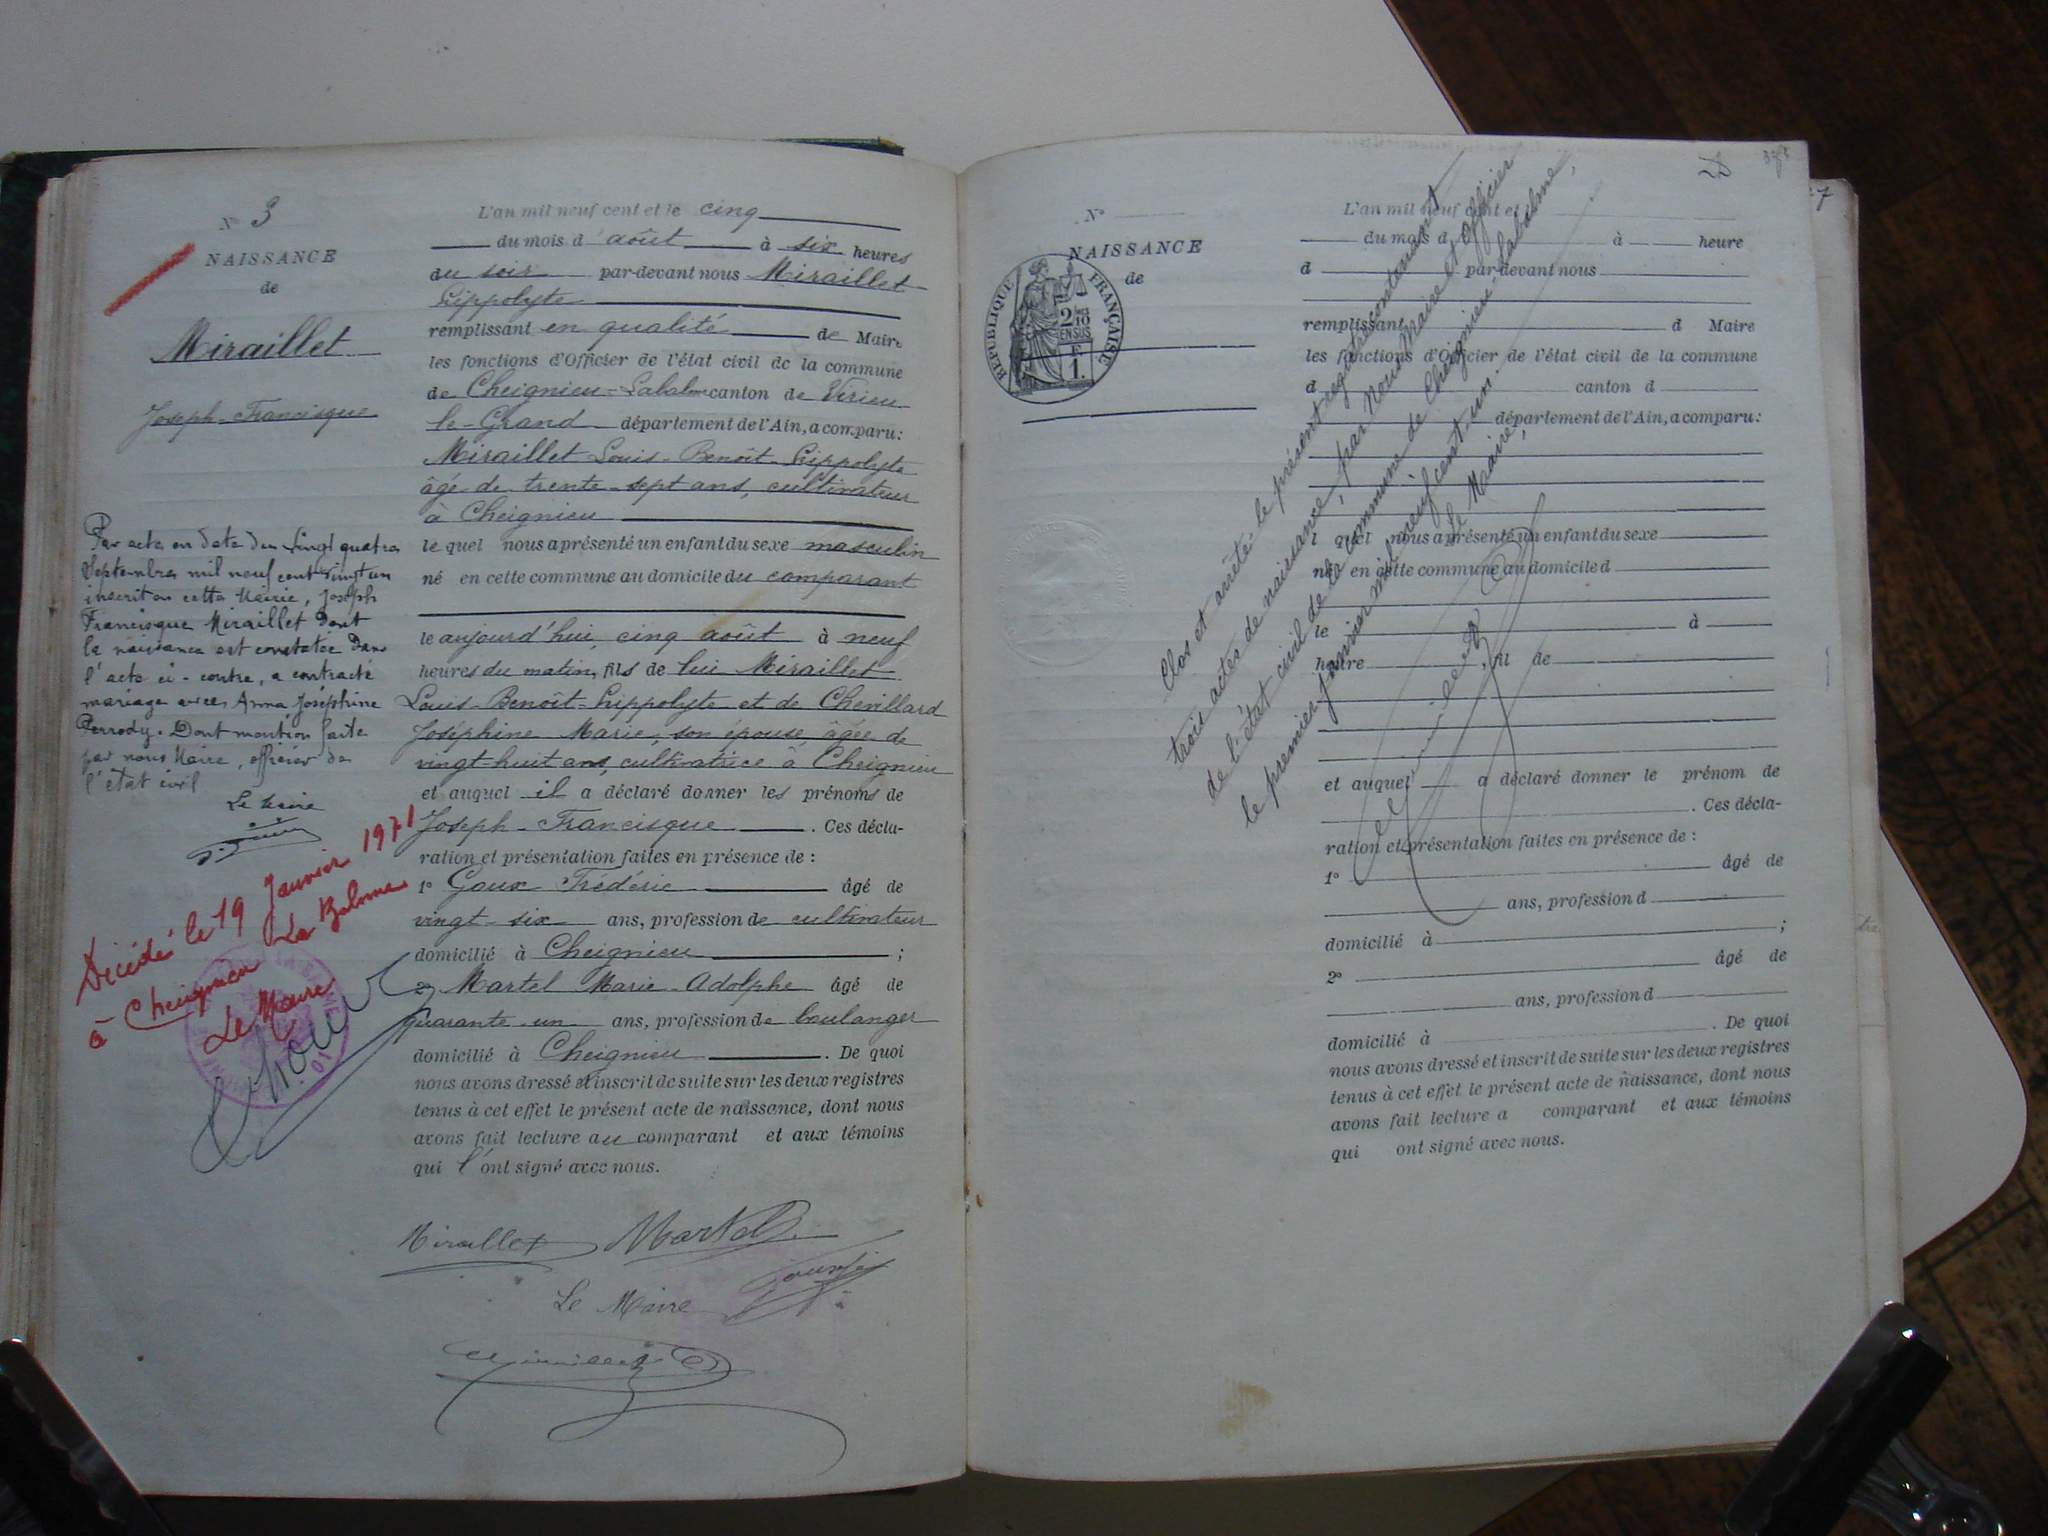 N° 3
NAISSANCE
de
Miraillet
Joseph-Francisque
Par acte en date du vingt quatre
Septembre mil neuf cent vingt un
inscrit en cette Mairie, Joseph
Francisque Miraillet dont
la naissance est constatée dans
l'acte ci-contre, a contracté
mariage avec Anna Joséphine
Perrody. Dont mention faite
par nous Maire, officier de
l'état civil
Le Maire
Décédé le 19 Janvier 1971
à Cheignieu La Balme
Le Maire
L'an mil neuf cent et le cinq
du mois d'août à six heures
du soir par-devant nous Miraillet
Hippolyte
remplissant en qualité de Maire
les fonctions d'Officier de l'état civil de la commune
de Cheignieu-Labalme canton de Virieu
le-Grand département de l'Ain, a comparu:
Miraillet Louis-Benoît-Hippolyte
âgé de trente-sept ans, cultivateur
à Cheignieu
le quel nous a présenté un enfant du sexe masculin
né en cette commune au domicile du comparant
le aujourd'hui, cinq août à neuf
heures du matin, fils de lui Miraillet
Louis-Benoît-Hippolyte et de Chevillard
Joséphine Marie, son épouse, âgée de
vingt-huit ans, cultivatrice à Cheignieu
et auquel il a déclaré donner les prénoms de
Joseph-Francisque. Ces décla-
ration et présentation faites en présence de :
1° Goux Frédéric âgé de
vingt-six ans, profession de cultivateur
domicilié à Cheignieu ;
2° Martel Marie-Adolphe âgé de
quarante-un ans, profession de boulanger
domicilié à Cheignieu. De quoi
nous avons dressé et inscrit de suite sur les deux registres
tenus à cet effet le présent acte de naissance, dont nous
avons fait lecture au comparant et aux témoins
qui l'ont signé avec nous.
Miraillet Martel
Le Maire
Miraillet
N°
NAISSANCE
de
RÉPUBLIQUE FRANÇAISE
L'an mil neuf cent et
du mois d à heure
d par-devant nous
remplissant d Maire
les fonctions d'Officier de l'état civil de la commune
d canton d
département de l'Ain, a comparu:
l quel nous a présenté un enfant du sexe
né en cette commune au domicile d
le à
heure, fil de
et auquel a déclaré donner le prénom de
. Ces décla-
ration et présentation faites en présence de :
1° âgé de
ans, profession d
domicilié à ;
2° âgé de
ans, profession d
domicilié à . De quoi
nous avons dressé et inscrit de suite sur les deux registres
tenus à cet effet le présent acte de naissance, dont nous
avons fait lecture a comparant et aux témoins
qui ont signé avec nous.
Clos et arrêté le présent registre contenant
trois actes de naissance, par Nous Maire et officier
de l'état civil de la commune de Cheignieu-labalme,
le premier janvier mil neuf cent un.
Le Maire,